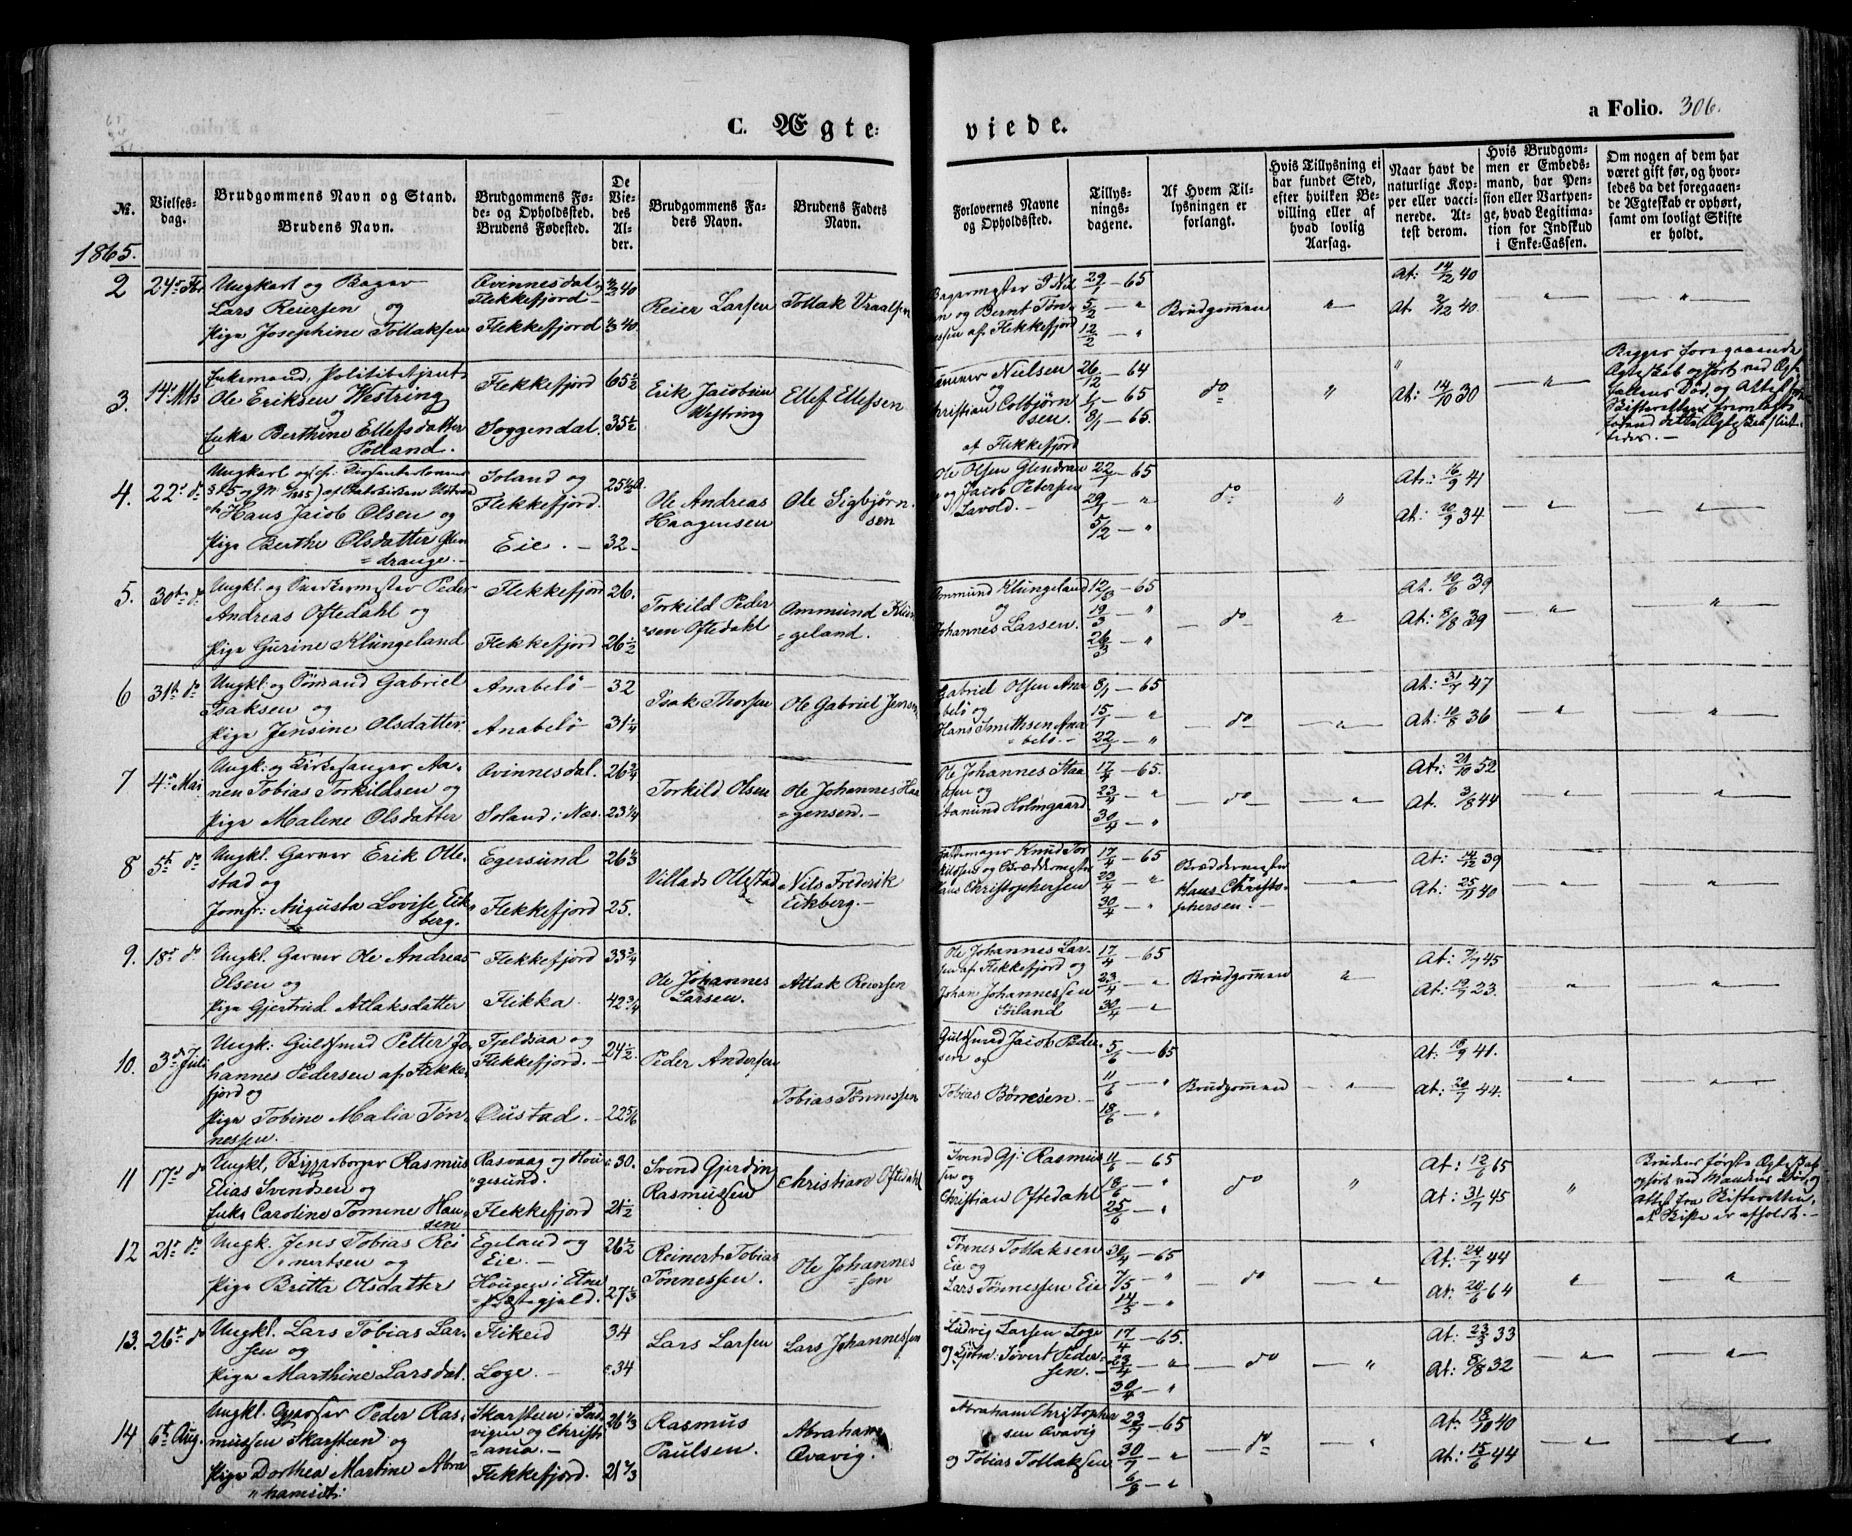 C. Ægte-
viede.
a Folio. 306.
№.
Vielses-
dag.
Brudgommens Navn og Stand.
Brudens Navn.
Brudgommens Fø-
de- og Opholdssted.
Brudens Fødested.
De
Vie-
des
Al-
der.
Brudgommens Fa-
ders Navn.
Brudens Faders
Navn.
Forlovernes Navne
og Opholdssted.
Tillys-
nings-
dagene.
Af Hvem Til-
lysningen er
forlangt.
Hvis Tillysning ei
har fundet Sted,
efter hvilken Be-
villing eller af
hvad lovlig
Aarsag.
Naar havt de
naturlige Kop-
per eller vacci-
nerede. At-
test derom.
Hvis Brudgom-
men er Embeds-
mand, har Pen-
sion eller Vartpen-
ge, hvad Legitima-
tion for Indskud
i Enke-Cassen.
Om nogen af dem har
været gift før, og hvor-
ledes da det foregaaen-
de Ægteskab er ophørt,
samt om lovligt Skifte
er holdt.
1865.
2 24de Fbr Ungkarl og Bager
Lars Reiersen og
Pige Josephine Tollaksen
Qvinnesdal,
Flekkefjord
Flekkefjord
40
40
Reier Larsen
Tollak Vraalsen
Bagermester
og Bernt Tøn-
essen af Flekkefjord
29/1 — 65
5/2 — "
12/2 — "
Brudgommen
"
At: 14/12 40
At: 40
"
"
3. 14de Mts Enkemand, Politibetjent
Ole Eriksen Westring
og
Enke Berthine Ellefsdatter
Pølland.
Flekkefjord
Soggendal.
65½
35½
Erik Jacobsen
Westring
Ellef Ellefsen
Tønner Nielsen
og
Christian Colbjørn
sen.
af Flekkefjord
26/12 — 64
1/1 — 65
8/1 — 65.
do
"
"
At: 14/10 30
"
Begges foregaaende
Ægteskab ophørt ved Ægte-
fællens Død, og Attest fra
Skifteretten fremlagt
forend dette Ægteskab stif-
tedes. —
4. 22de do Ungkarl og
Hans Jacob Olsen og
Pige Berthe Olsdatter Glen
drange. —
Soland og
Flekkefjord.
Eie. —
25½
32 —
Ole Andreas
Haagensen
Ole Sigbjørn-
sen
Ole Olsen Glendran
og Jacob Petersen
Lavold. —
22/1 — 65
29/1 — "
5/2 — "
do
"
At: 16/9 41
At: 20/9 34
"
"
5. 30te do Ungkl. og Snedkermester Peder
Andreas Oftedahl og
Pige Gurine Klungeland
Flekkefjord
Flekkefjord
26.
26½
Torkild Peder
sen Oftedahl
Ommund Klun-
geland.
Ommund Klungeland
og
Johannes Larsen.
12/3 — 65
19/3 — "
26/3 — "
do
"
At. 10/6 39
At: 8/8 39
"
"
6 31te do Ungkl: og Gabriel
Isaksen og
Pige Jensine Olsdatter
Anabelø —
Anabelø
32
31¼
Isak Thorsen
Ole Gabriel Jensen
Gabriel Olsen Ana
belø og
Hans Smithsen Ana
belø. —
8/1 — 65
15/1 — "
22/1 — "
do
"
At: 31/7 47
At: 10/8 36
"
"
7 4de Mai Ungk: og Kirkesanger Aa-
nen Tobias Torkildsen og
Pige Malene Olsdatter
Qvinnesdal.
Soland i Næs.
26¾
23¼
Torkild Olsen
Ole Johannes Haa
gensen. —
Ole Johannes
og
Aanund Holmgaard
17/4 — 65.
23/4 — "
30/4 — "
do
"
At: 21/10 52
At. 3/8 44
"
"
8 5te do Ungkl. Garver Erik Olle-
stad og
Jomfr: Augusta Lovise Eik-
berg.
Egersund
Flekkefjord
26⅓
25.
Villads Ollestad
Nils Frederik
Eikberg. —
Knud Tor
kildsen og
Hans Christophersen
17/4 — 65
23/4 — "
30/4 — "
Hans Christo-
phersen. —
"
At: 14/12 39
At: 25/11 40
"
"
9. 18de do Ungkl. Garver Ole Andreas
Olsen og
Pige Gjertrud Atlaksdatter
Flekkefjord
Flikka.
33¾
42¾
Ole Johannes
Larsen.
Atlak Reiersen
Ole Johannes Lar-
sen af Flekkefjord og
Johan Johannessen
Siland
17/4 — 65
23/4 — "
30/4 — "
Brudgommen
"
At: 7/7 45
At: 19/7 23.
"
"
10. 3die Juli Ungk: Guldsmed Petter Jo-
hannes Pedersen af Flekke-
fjord og
Pige Tobine Malia Tøn-
nessen.
Fjeldsaa og
Flekkefjord. —
Oustad. —
24½
22 5/6
Peder Andersen
Tobias Tønnessen
Guldsmed Jacob Peder-
sen og
Tobias Børresen. —
5/6 — 65
11/6 — "
18/6 — "
Brudgommen
"
At: 18/9 41.
At: 20/7 44.
"
"
11 17de do Ungkl, Rasmus
Elias Svendsen og
Enke Caroline Tomine Han-
sen
Rasvaag og Hou
gesund.
Flekkefjord
30.
21½
Svend Gjerding
Rasmussen
Christian Oftedahl
Svend Gj: Rasmus
sen og
Christian Oftedahl
11/6 — 65
18/6 — "
25/6 — "
do
"
At: 12/6 65
At: 31/7 45
"
Brudens første Ægteskab
ophørt ved Mandens Død, og
Attest fra Skifteretten,
at Skifte er afholdt. —
12 21de do Ungk. Jens Tobias Rei
nertsen og
Pige Britta Olsdatter
Egeland og
Eie. —
Hougen i Etne
Præstegjeld.
26½
27⅓
Reinert Tobias
Tønnessen.
Ole Johannes
sen
Tønnes Tollaksen
Eie og
Lars Tønnessen Eie
30/4 — 65
7/5 — "
14/5 — "
do
"
At: 24/7 44
At: 20/6 64
"
"
13. 26de do Ungkl. Lars Tobias Lar-
sen og
Pige Marthine Larsdat.
Flikeid
Loge. —
34
34
Lars Larsen
Lars Johannessen
Ludvig Larsen Loge
og Sivert Peder-
sen. —
17/4 — 65.
23/4 — "
30/4 — "
do
"
At: 23/3 33
At: 8/8 32
"
"
14 6te Aug. Ungkl. Peder Ras-
mussen Skarsteen og
Pige Dorthea Martine Abra
hamsdt:
Skarsteen i Ind-
vigen og Christi-
ania. —
Flekkefjord.
26⅓
21⅔
Rasmus
Paulsen.
Abraham
Qvavig.
Abraham Christopher
sen Qvavig
og Tobias Tollaksen
23/7 — 65
30/7 — "
6/8 — "
do
"
At: 18/10 40
At: 15/6 44
"
"